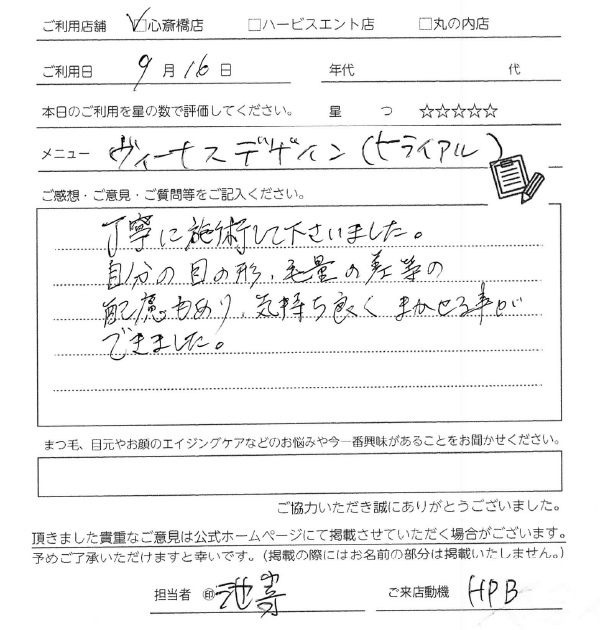 ご利用店舗 ☑心斎橋店 □ハービスエント店 □丸の内店
ご利用日 9月16日 年代 代
本日のご利用を星の数で評価してください。 星 つ ☆☆☆☆☆
メニュー ヴィーナスデザイン(トライアル)
ご感想・ご意見・ご質問等をご記入ください。
丁寧に施術して下さいました。
自分の目の形、毛量の差等の
配慮もあり、気持ち良くまかせる事が
できました。
まつ毛、目元やお顔のエイジングケアなどのお悩みや今一番興味があることをお聞かせください。
ご協力いただき誠にありがとうございました。
頂きました貴重なご意見は公式ホームページにて掲載させていただく場合がございます。
予めご了承いただけますと幸いです。(掲載の際にはお名前の部分は掲載いたしません。)
担当者 ㊞ 池嵜 ご来店動機 HPB